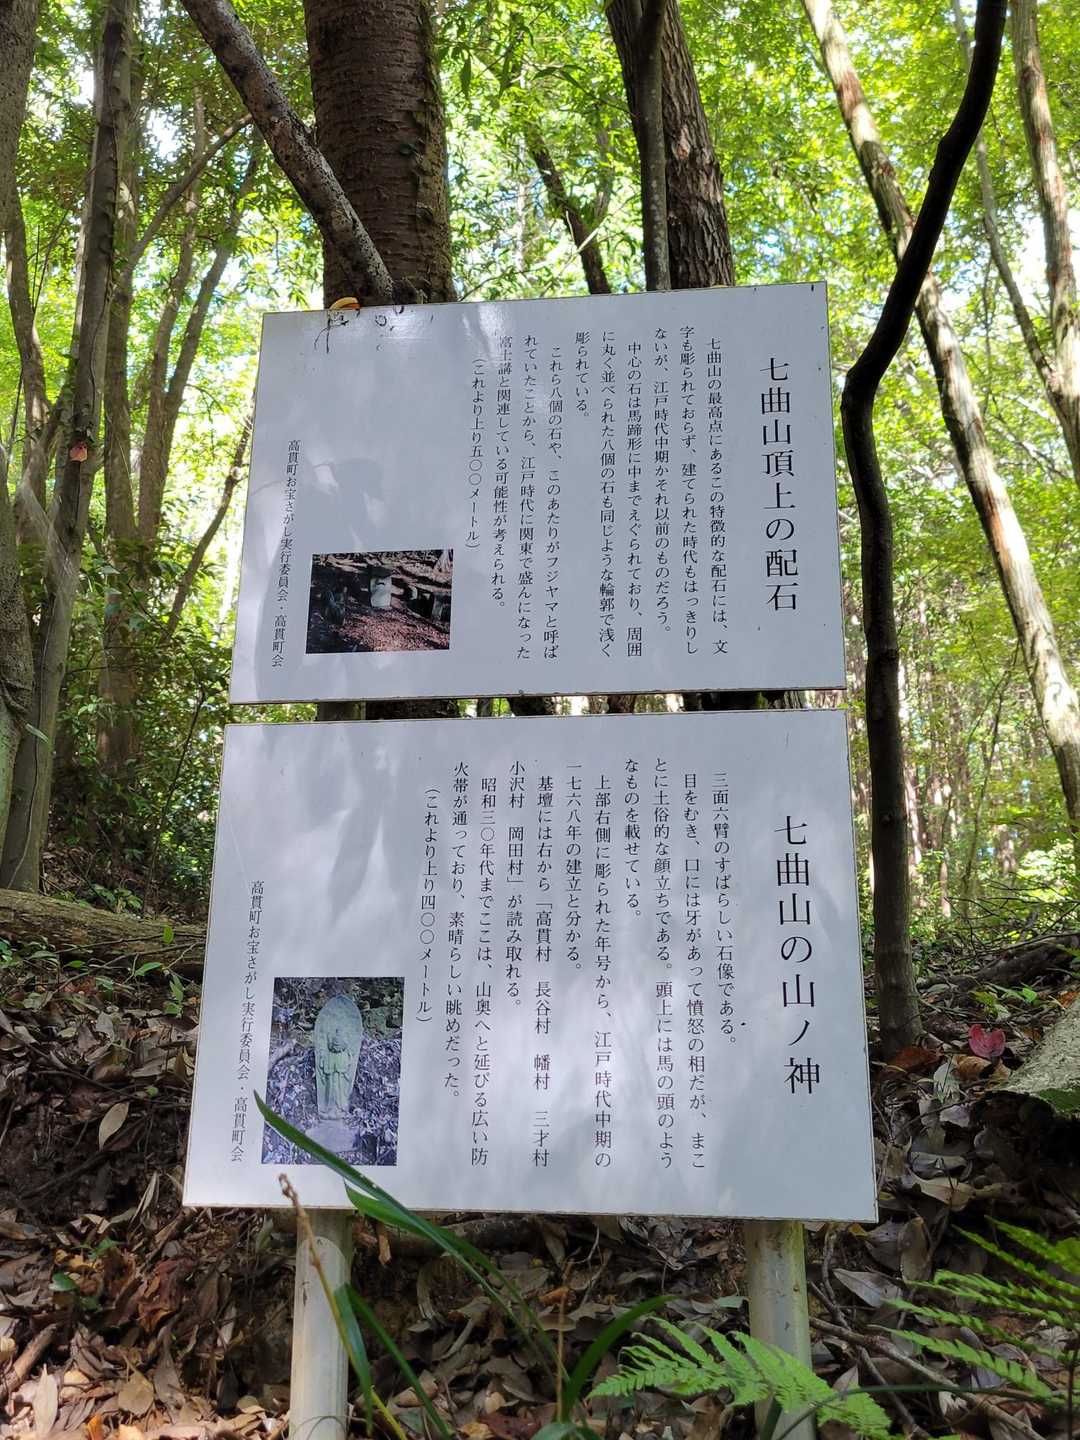 七曲山頂上の配石
七曲山の最高点にあるこの特徴的な配石には、文
字も彫られておらず、建てられた時代もはっきりし
ないが、江戸時代中期かそれ以前のものだろう。
中心の石は馬蹄形に中までえぐられており、周囲
に丸く並べられた八個の石も同じような輪郭で浅く
彫られている。
これら八個の石や、このあたりがフジヤマと呼ば
れていたことから、江戸時代に関東で盛んになった
富士講と関連している可能性が考えられる。
（これより上り五〇〇メートル）
高貫町お宝さがし実行委員会・高貫町会
七曲山の山ノ神
三面六臂のすばらしい石像である。
目をむき、口には牙があって憤怒の相だが、まこ
とに土俗的な顔立ちである。頭上には馬の頭のよう
なものを載せている。
上部右側に彫られた年号から、江戸時代中期の
一七六八年の建立と分かる。
基壇には右から「高貫村　長谷村　幡村　三才村
小沢村　岡田村」が読み取れる。
昭和三〇年代までここは、山奥へと延びる広い防
火帯が通っており、素晴らしい眺めだった。
（これより上り四〇〇メートル）
高貫町お宝さがし実行委員会・高貫町会